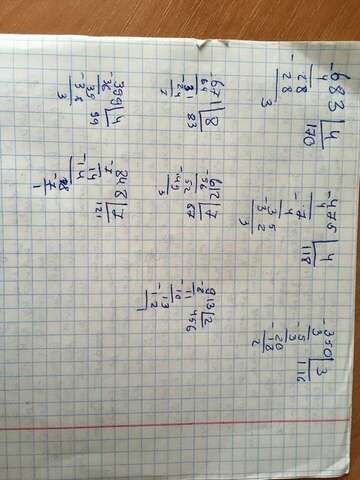 -683|4
4 170
-28
28
3
-475|4
4 118
-7
4
-35
32
3
-350|3
3 116
-5
3
-20
18
2
-671|8
64 83
-31
24
7
-612|7
-56 87
52
-49
3
-913|2
8 456
-11
10
-13
12
1
-399|4
36 99
-39
36
3
848|7
-7 121
14
-14
-8
7
1